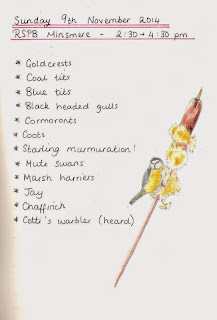 Sunday 9th November 2014
RSPB Minsmere - 2:30 → 4:30 pm
* Goldcrests
* Coal tits
* Blue tits
* Black headed gulls
* Cormorants
* Coots
* Starling murmuration!
* Mute Swans
* Marsh harriers
* Jay
* Chaffinch
* Cetti's warbler (heard)